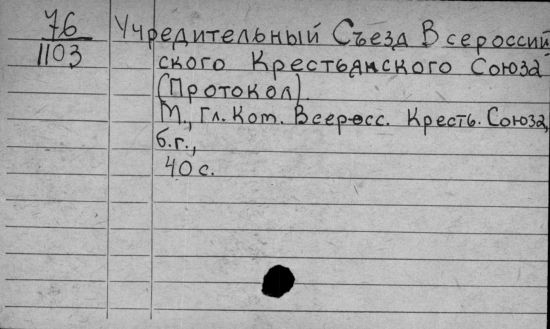 76
1103
Учредительный Съезд Всероссий-
ского Крестьянского Союза
(Протокол).
М., Гл. Ком. Всеросс. Кресть. Союза,
б.г.,
40 с.